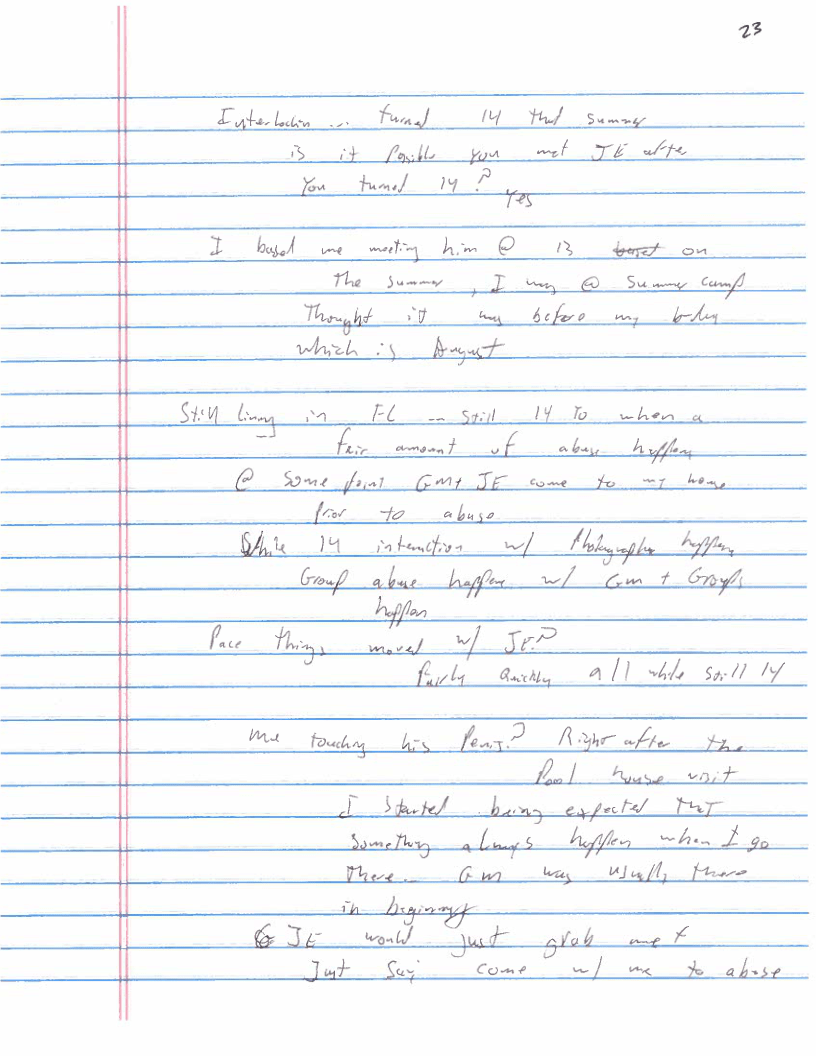 23
Interlochin ... turned 14 that summer
is it possible you met JE after
You turned 14? Yes
I based me meeting him @ 13 based on
The summer, I was @ summer camp
Thought it was before my b-day
which is August
Still living in FL -- still 14 to when a
fair amount of abuse happen
@ some point GM + JE come to my home
Prior to abuse
While 14 interaction w/ Photographer happen
Group abuse happen w/ GM + Groups
happen
Pace things moved w/ JE?
Fairly Quickly all while still 14
me touching his Penis? Right after the
Pool house visit
I started being expected that
something always happen when I go
there. GM was usually there
in beginning
JE would just grab me +
Just say come w/ me to abuse